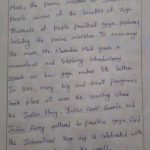 Modi, the prime minister of
people aware of the benefits of Yoga.
Thousands of People practiced yoga postures,
including the prime minister. To encourage
the mass, Mr Narendra Modi gave a
and inspiring introductory
speech on how yoga makes life better.
In this, many big and small programs
took place all over the country where
the Indian Navy, Indian Coast Guards, and
Indian Army gathered to practice yoga. And
the International Yoga day is celebrated with